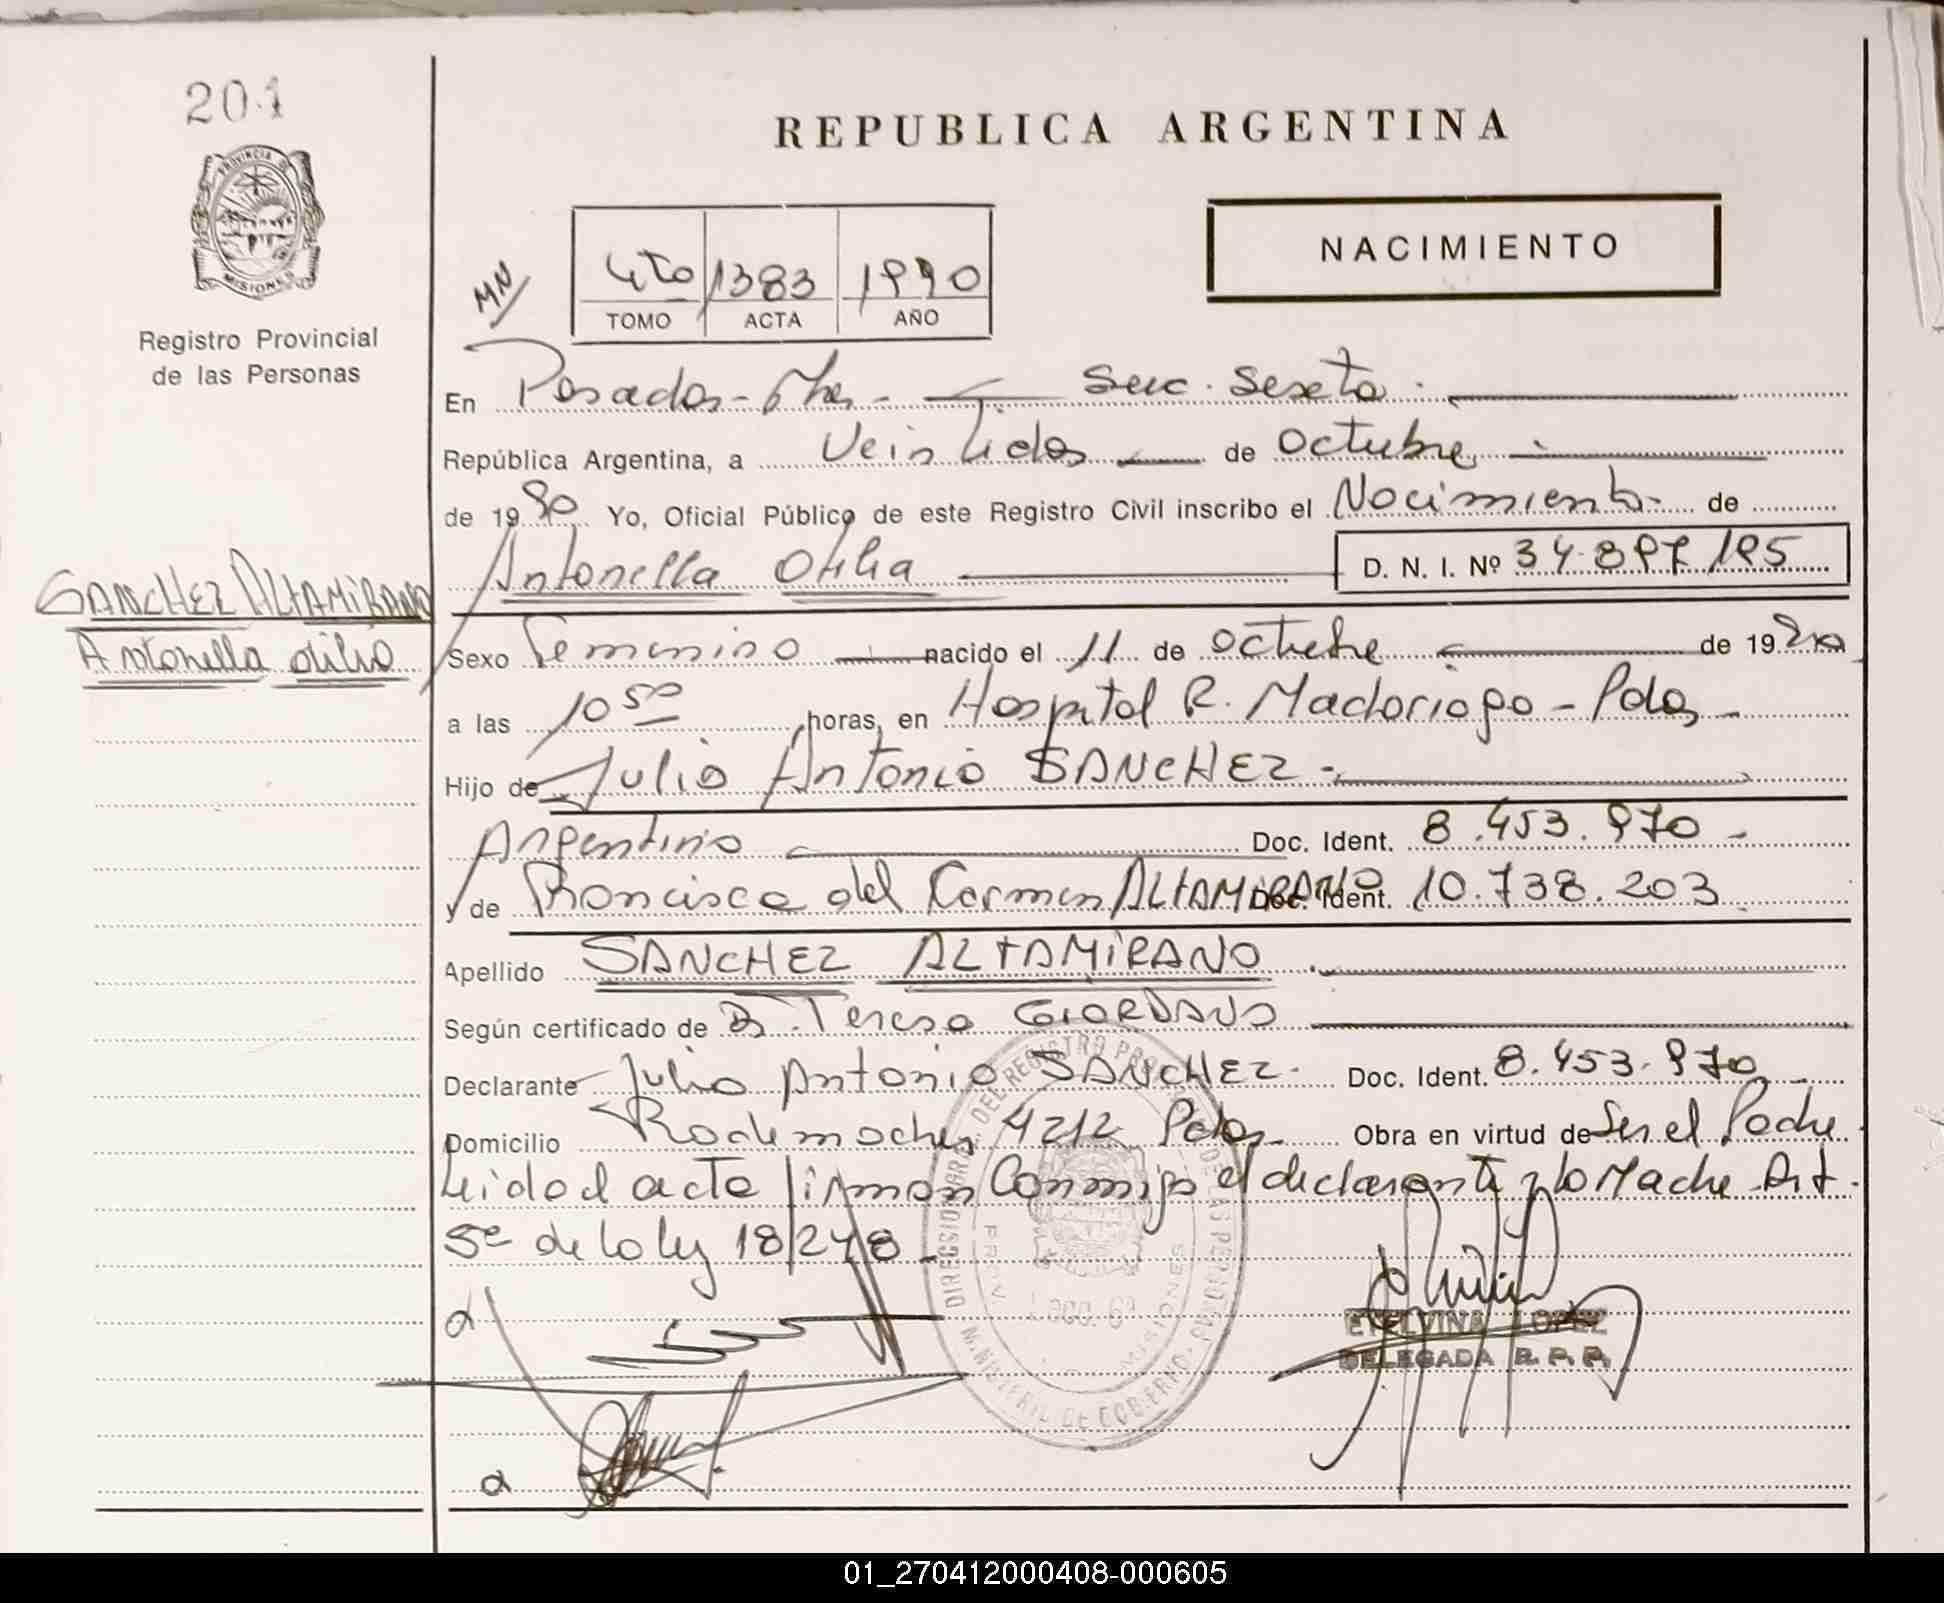 204
PROVINCIA DE
MISIONES
Registro Provincial
de las Personas
REPUBLICA ARGENTINA
NACIMIENTO
MN
4to 1383 1990
TOMO ACTA AÑO
En Posadas - Mnes - Secc. Sexta.
República Argentina, a Veintidos de Octubre
de 1990 Yo, Oficial Público de este Registro Civil inscribo el Nacimiento de
Antonella Otilia D. N. I. Nº 34.897.195
SANCHEZ ALTAMIRANO
Antonella Otilia
Sexo Femenino nacido el 11 de Octubre de 1990
a las 10 50 horas, en Hospital R. Madariaga - Pdas
Hijo de Julio Antonio SANCHEZ
Argentino Doc. Ident. 8.453.970
y de Francisca del Carmen ALTAMIRANO Doc. Ident. 10.738.203
Apellido SANCHEZ ALTAMIRANO
Según certificado de Teresa GIORDANO
Declarante Julio Antonio SANCHEZ Doc. Ident. 8.453.970
Domicilio 4212 Pdas Obra en virtud de Ser el Padre
Leida el acta firman Conmigo el declarante y la Madre Art.
5º de la ley 18/248
DIRECCION GRAL. DEL REGISTRO PROVINCIAL DE LAS PERSONAS
PROV. MISIONES
MINISTERIO DE GOBIERNO
ETELVINA LOPEZ
DELEGADA R. P. P.
01_270412000408-000605